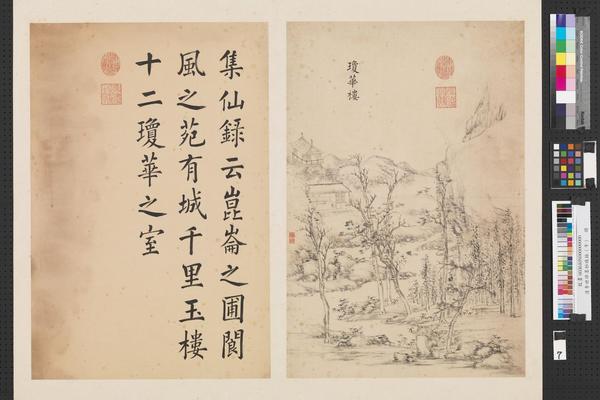 集仙錄云崑崙之圃閬
風之苑有城千里玉樓
十二瓊華之室
瓊華樓
7